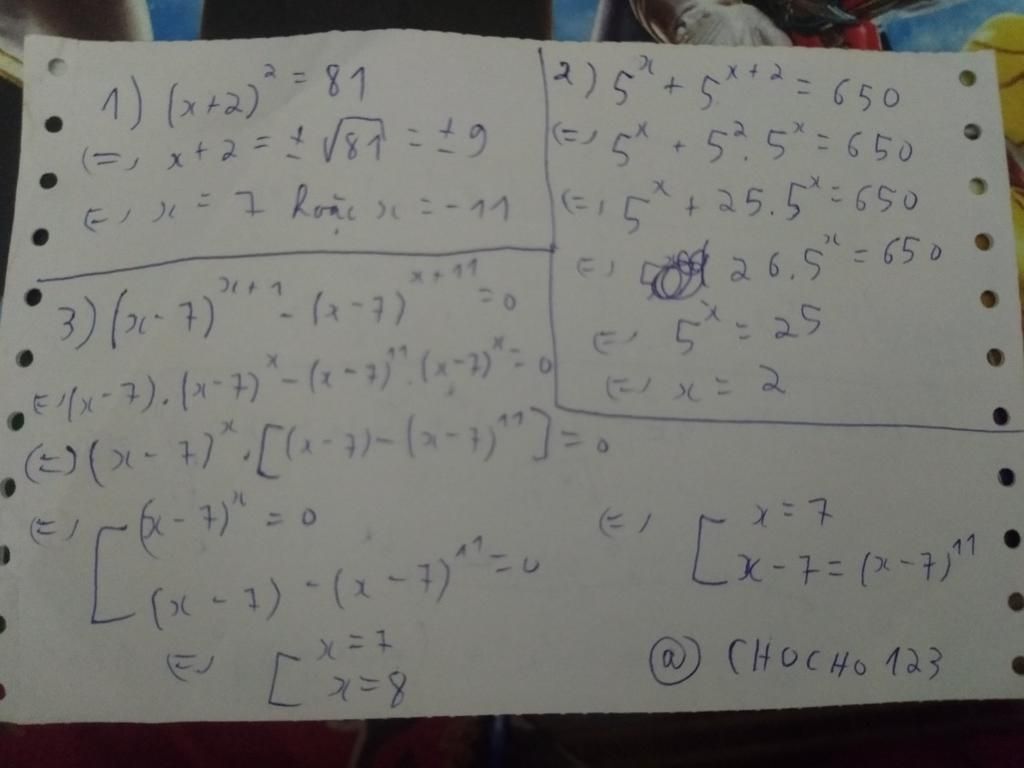 1) (x+2)² = 81
(=, x+2 = ±√81 = ±9
(=, x = 7 hoặc x = -11
2) 5ˣ + 5ˣ⁺² = 650
(=, 5ˣ + 5².5ˣ = 650
(=, 5ˣ + 25.5ˣ = 650
(=, 26.5ˣ = 650
(=, 5ˣ = 25
(=, x = 2
3) (x-7)ˣ⁺¹ - (x-7)ˣ⁺¹¹ = 0
(=, (x-7).(x-7)ˣ - (x-7)¹¹.(x-7)ˣ = 0
(=) (x-7)ˣ.[(x-7) - (x-7)¹¹] = 0
(=, [ (x-7)ˣ = 0
(x-7) - (x-7)¹¹ = 0
(=, [ x = 7
x - 7 = (x-7)¹¹
(=, [ x = 7
x = 8
@ CHOCHO123